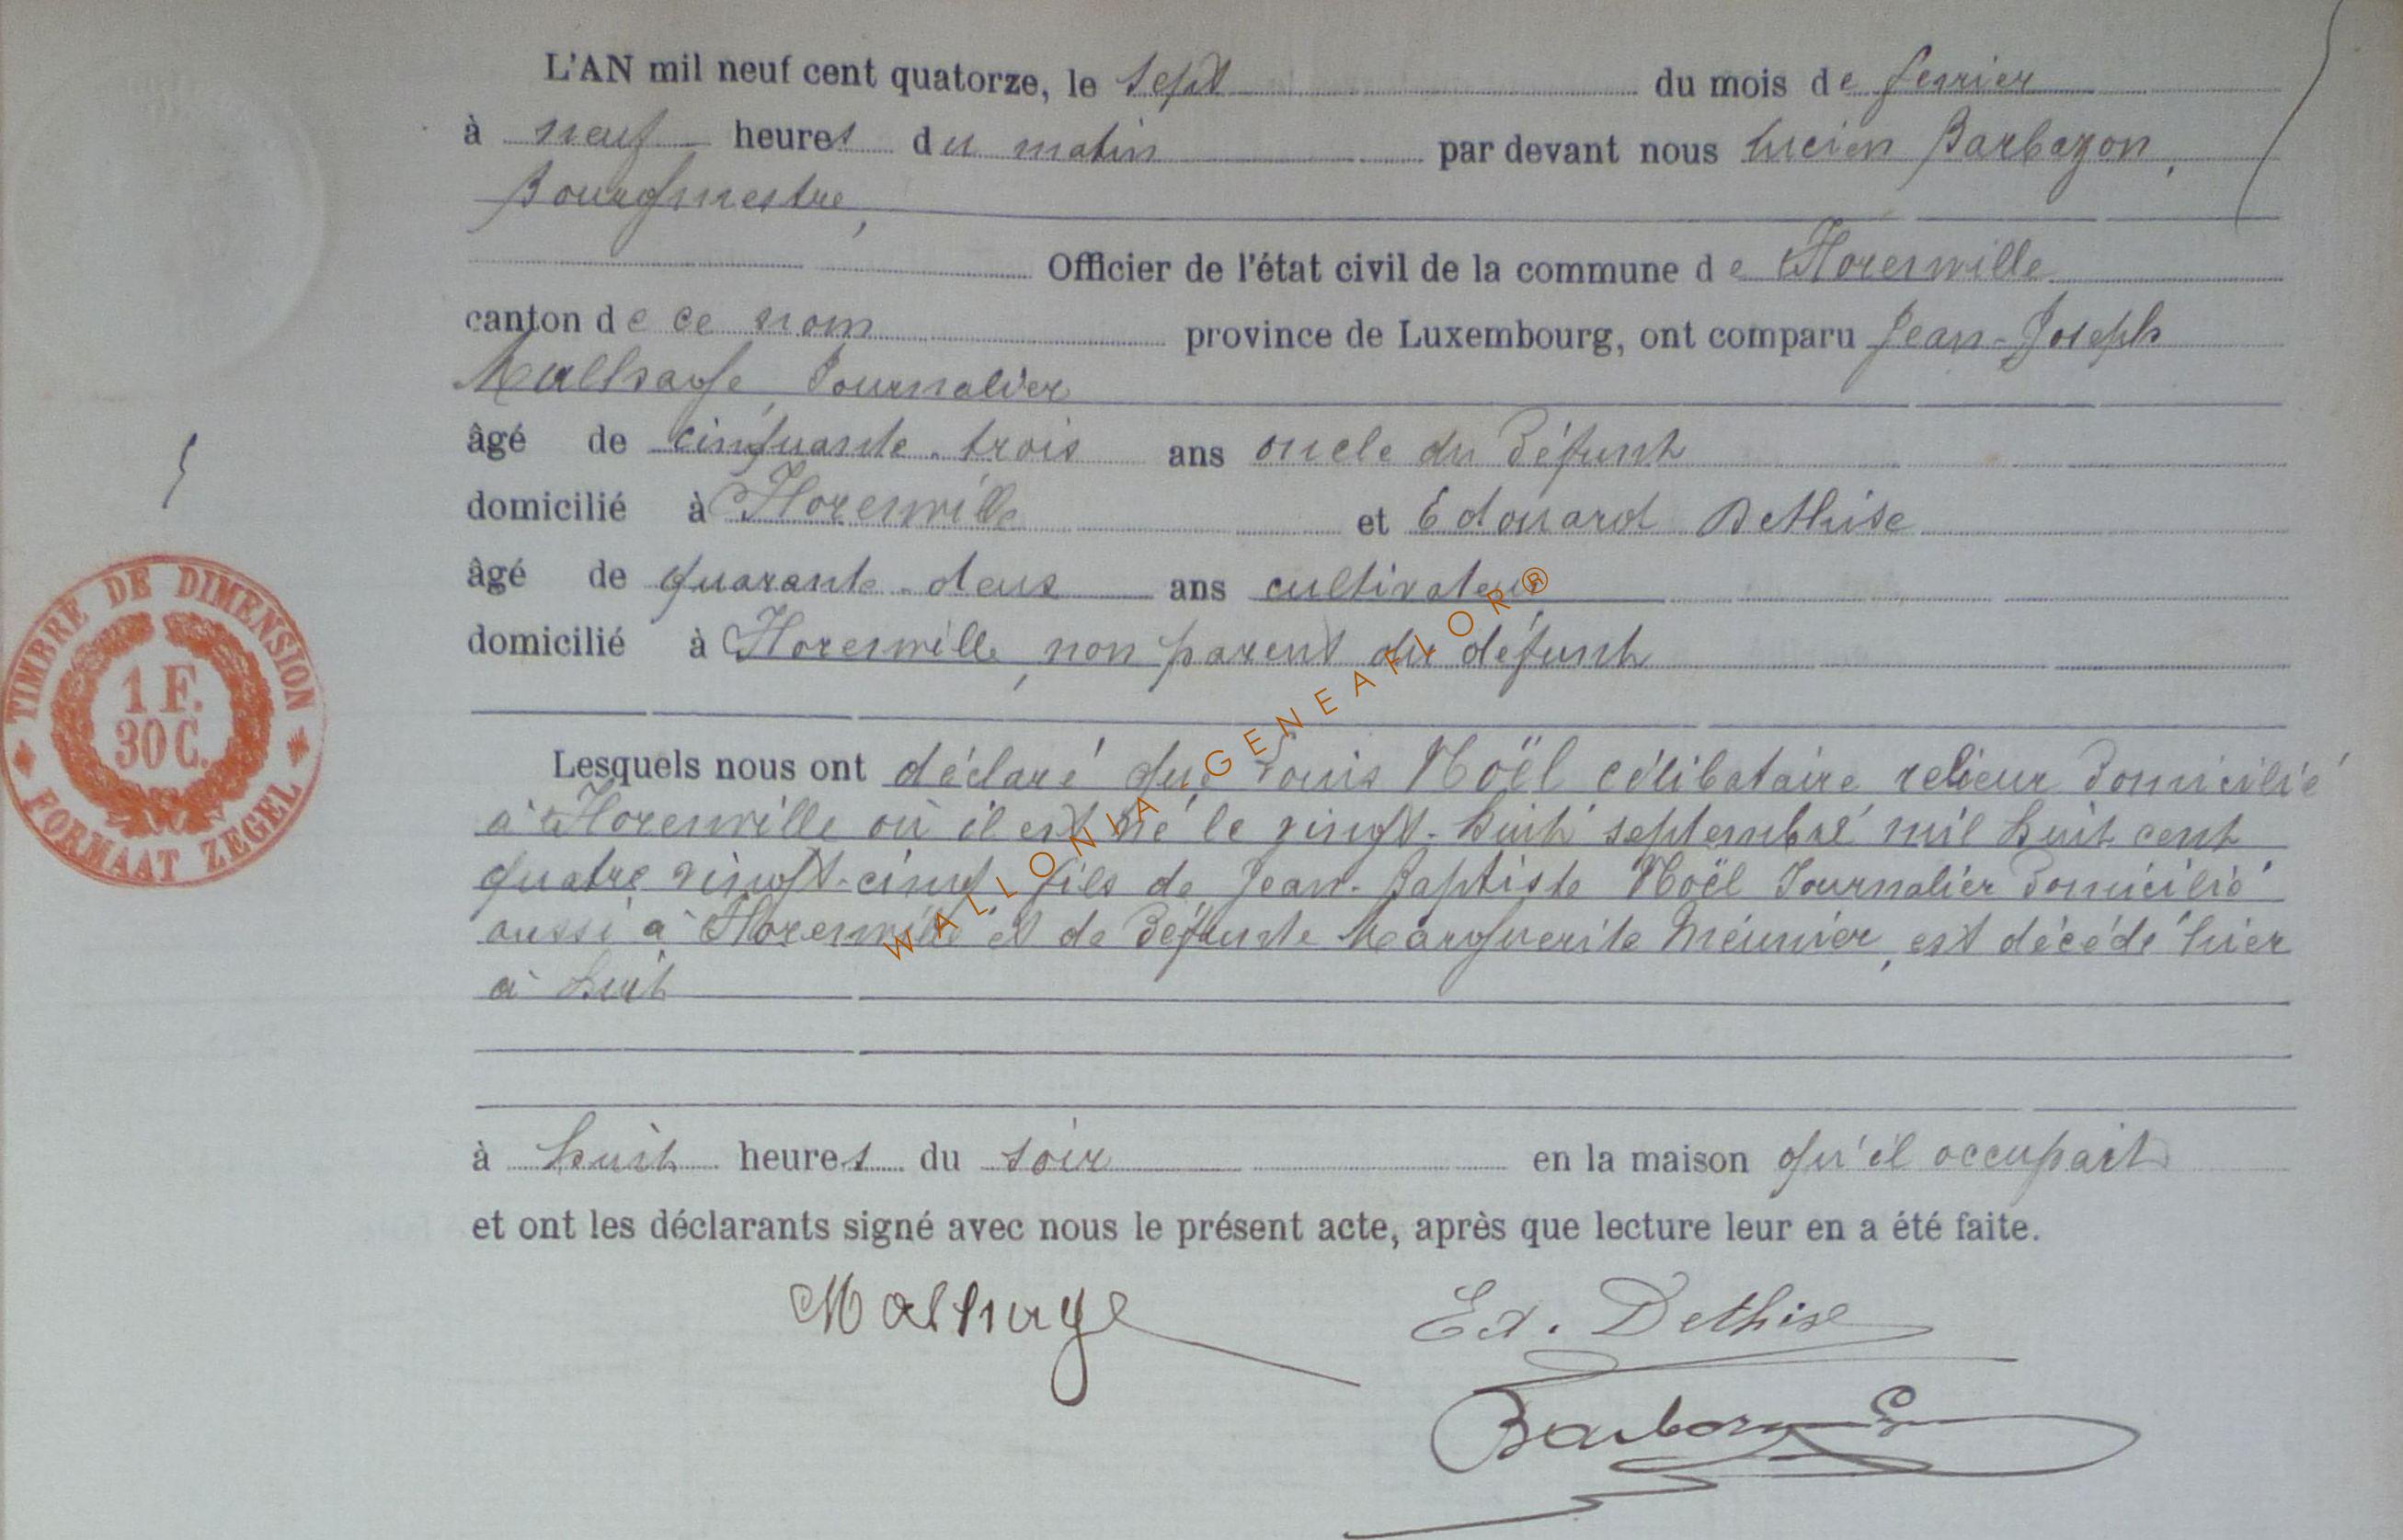 L'AN mil neuf cent quatorze, le sept du mois de fevrier
à neuf heures du matin par devant nous Lucien Barbazon,
Bourgmestre,
Officier de l'état civil de la commune de Florenville
canton de ce nom province de Luxembourg, ont comparu Jean-Joseph
Malhage, Journalier
âgé de cinquante-trois ans oncle du défunt
domicilié à Florenville et Edouard Dethise
âgé de quarante-deux ans cultivateur
domicilié à Florenville, non parent du défunt
Lesquels nous ont déclaré que Louis Noël célibataire relieur domicilié
à Florenville où il est né le vingt-huit septembre mil huit cent
quatre vingt-cinq fils de Jean-Baptiste Noël Journalier domicilié
aussi à Florenville et de défunte Marguerite Meunier, est décédé hier
à huit
à huit heures du soir en la maison qu'il occupait
et ont les déclarants signé avec nous le présent acte, après que lecture leur en a été faite.
Malhage Ed. Dethise
TIMBRE DE DIMENSION
1 F.
30 C.
FORMAAT ZEGEL
WALLONIA GENEAFLOR®